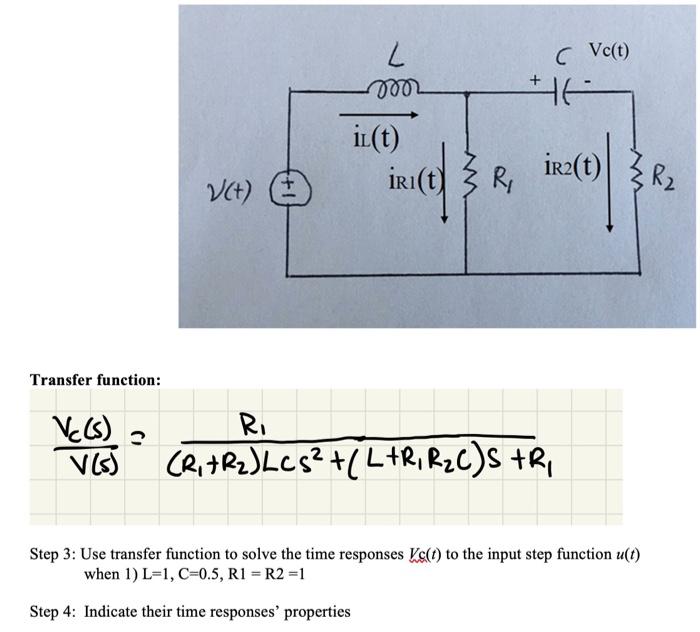 L
C Vc(t)
+ -
iL(t)
iR1(t)
R₁
iR2(t)
R₂
V(t)
+
-
Transfer function:
Vc(s) / V(s) = R₁ / (R₁+R₂)LCS²+(L+R₁R₂C)S+R₁
Step 3: Use transfer function to solve the time responses Vc(t) to the input step function u(t)
when 1) L=1, C=0.5, R1 = R2 =1
Step 4: Indicate their time responses' properties